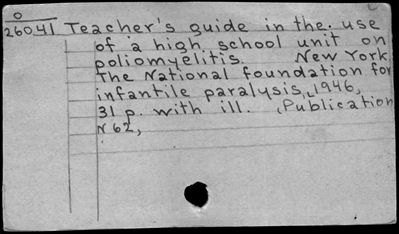 O
26041 Teacher's guide in the use
of a high school unit on
poliomyelitis. New York
The National foundation for
infantile paralysis, 1946,
31 p. with ill. (Publication
N 62,